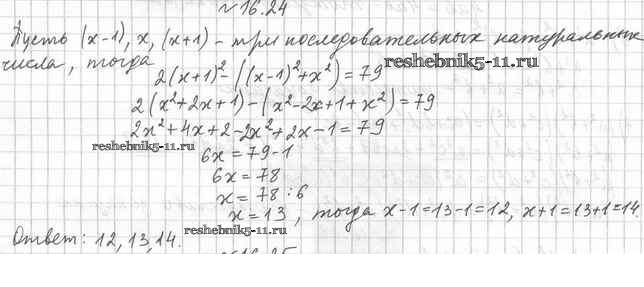 №16.24
Пусть (x-1), x, (x+1) - три последовательных натуральных
числа, тогда
2(x+1)²-((x-1)²+x²)=79
reshebnik5-11.ru
2(x²+2x+1)-(x²-2x+1+x²)=79
2x²+4x+2-2x²+2x-1=79
reshebnik5-11.ru
6x=79-1
6x=78
x=78:6
x=13, тогда x-1=13-1=12, x+1=13+1=14.
reshebnik5-11.ru
Ответ: 12, 13, 14.
№16.25